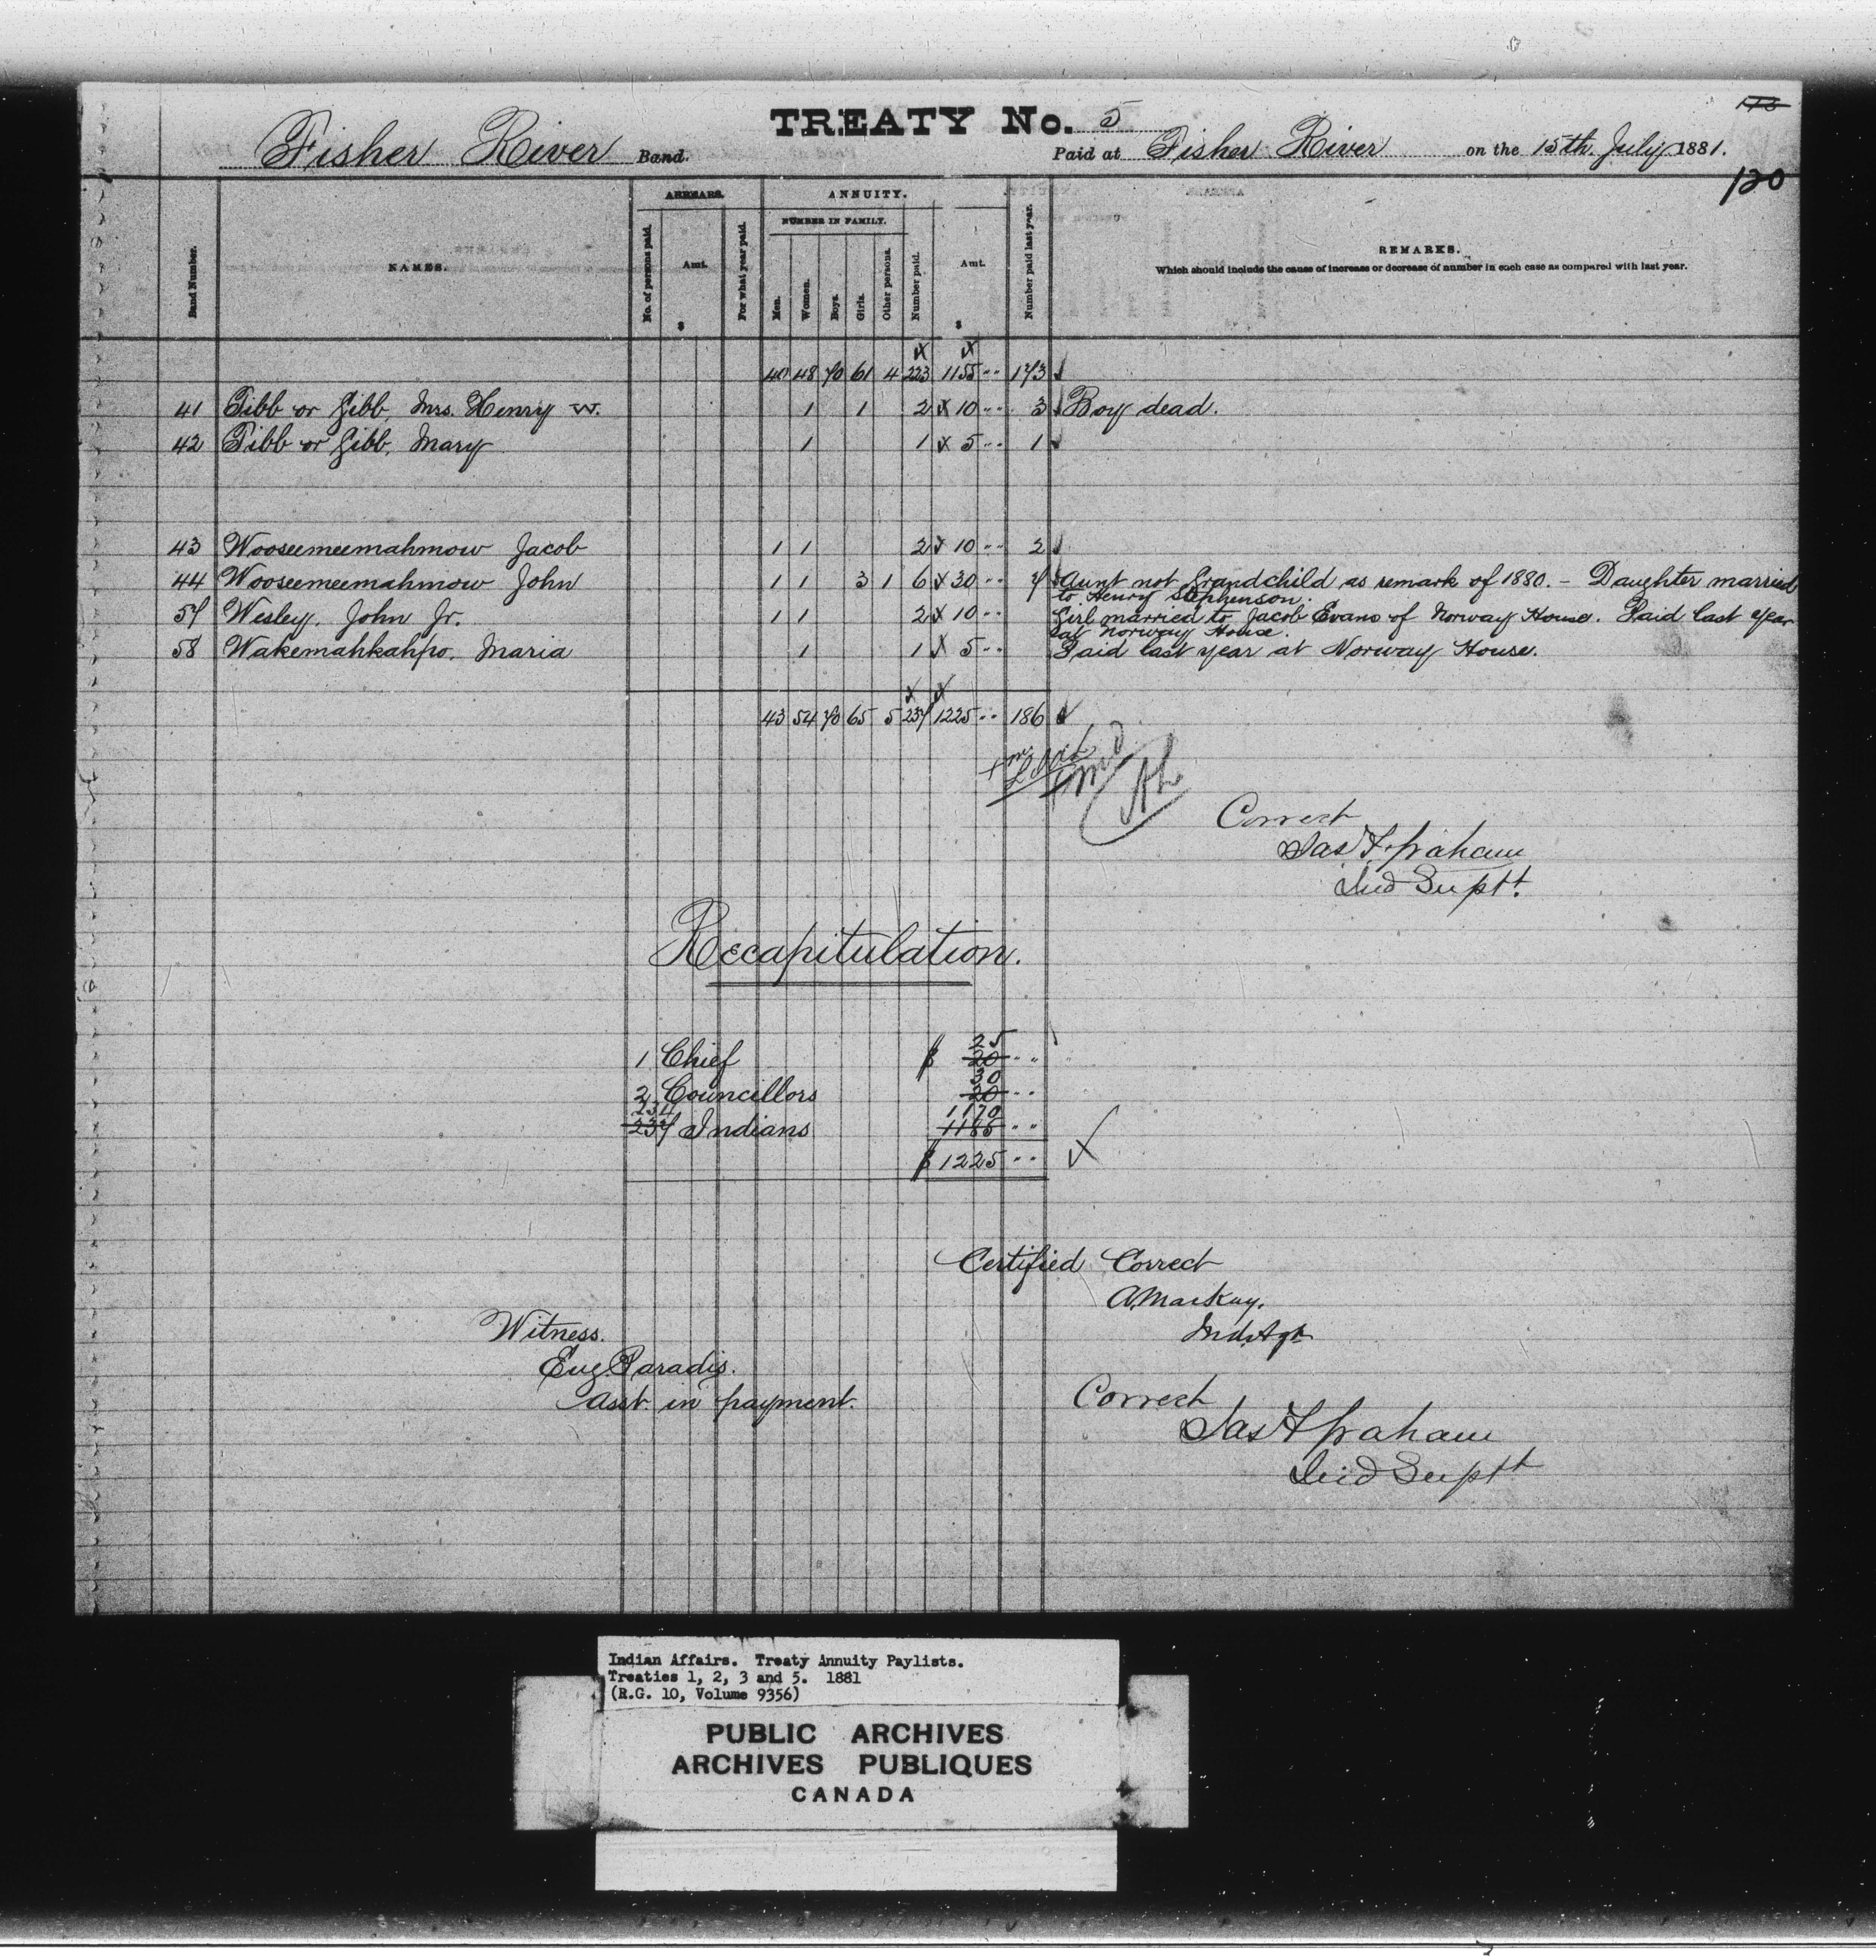 TREATY No. 5
113
Fisher River Band. Paid at Fisher River on the 15th July 1881.
120
ARREARS. ANNUITY.
NUMBER IN FAMILY.
Band Number. NAMES. No. of persons paid. Amt. $ For what year paid. Men. Women. Boys. Girls. Other persons. Number paid. Amt. $ Number paid last year. REMARKS.
Which should include the cause of increase or decrease of number in each case as compared with last year.
40 48 70 61 4 223 1155 " 173
41 Tibb or Gibb, Mrs. Henry W. 1 1 2 x 10 " 3 Boy dead.
42 Tibb or Gibb, Mary 1 1 x 5 " 1
43 Wooseemeemahmow Jacob 1 1 2 x 10 " 2
44 Wooseemeemahmow John 1 1 3 1 6 x 30 " 7 Aunt not Grandchild as remark of 1880. – Daughter married
to Henry Stephenson.
57 Wesley, John Jr. 1 1 2 x 10 " Girl married to Jacob Evans of Norway House. Paid last year
at Norway House.
58 Wakemahkahpo, Maria 1 1 x 5 " Paid last year at Norway House.
43 54 70 65 5 237 1225 " 186
Correct
Jas F Graham
Ind Supt.
Recapitulation.
25
1 Chief $ 20 "
30
2 Councillors 20 "
234 1170
237 Indians 1185 "
$ 1225 "
Certified Correct
A. MacKay.
Ind. Agt
Witness.
Eug. Paradis.
Asst. in payment.
Correct
Jas F Graham
Ind Supt
Indian Affairs. Treaty Annuity Paylists.
Treaties 1, 2, 3 and 5. 1881
(R.G. 10, Volume 9356)
PUBLIC ARCHIVES
ARCHIVES PUBLIQUES
CANADA